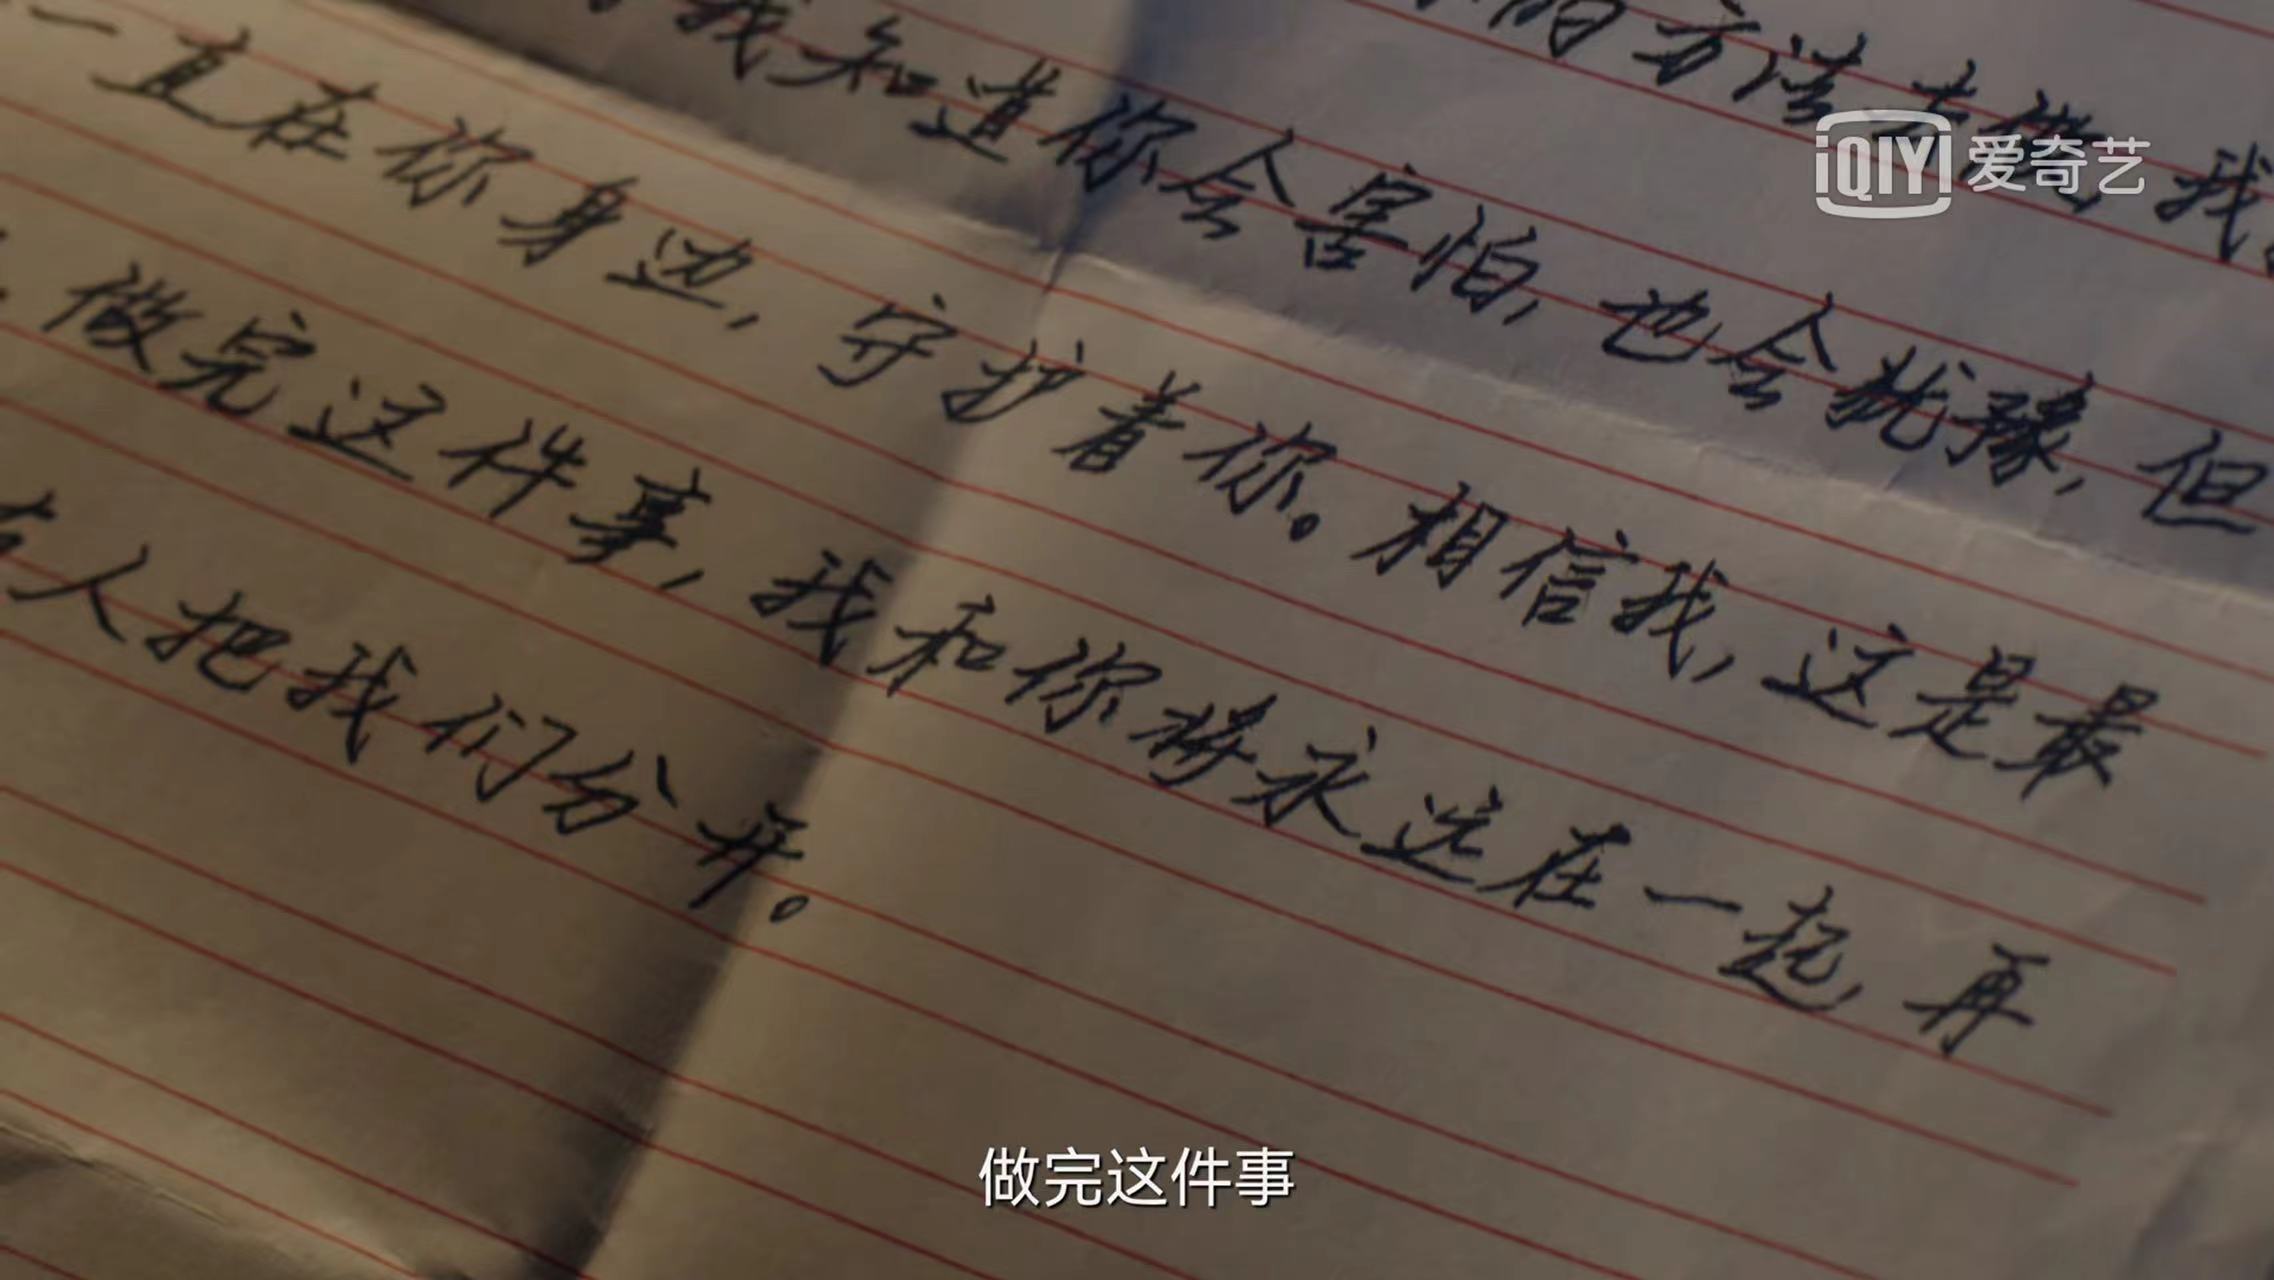 的方法去做 我
我知道你会害怕,也会犹豫,但
一直在你身边,守护着你。相信我,这是最
做完这件事,我和你将永远在一起,再
有人把我们分开。
iQIYI 爱奇艺
做完这件事